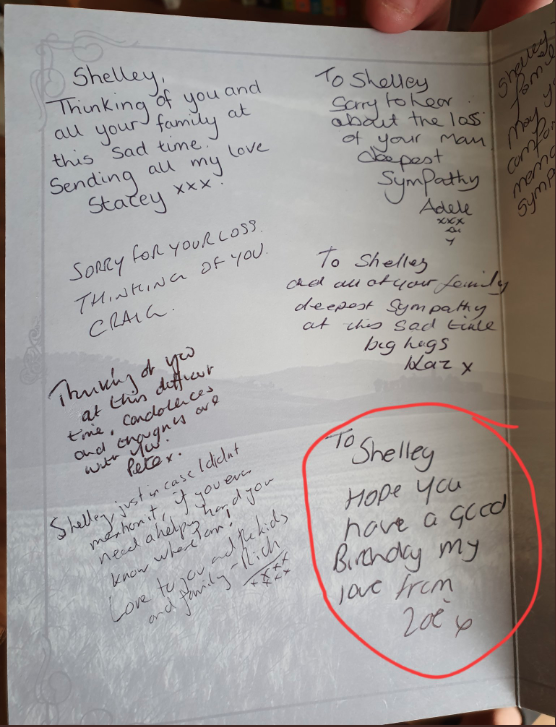 Shelley,
Thinking of you and
all your family at
this sad time.
Sending all my love
Stacey xxx.
SORRY FOR YOUR LOSS.
THINKING OF YOU.
CRAIG.
Thinking of you
at this difficult
time, condolences
and thoughts are
with you.
Pete x.
Shelley just in case I didnt
mention it, if you ever
need a helping hand you
know where I am!
Love to you and the kids
and family - Rich
xxxx
xxxx
To Shelley
Sorry to hear
about the loss
of your Mam
deepest
Sympathy
Adele
xxx
To Shelley
and all of your family
deepest Sympathy
at this sad time
big hugs
x
To Shelley
HOPE YOU
have a good
Birthday my
love from
Zoë x
Shelley
family
May
memo
Symp